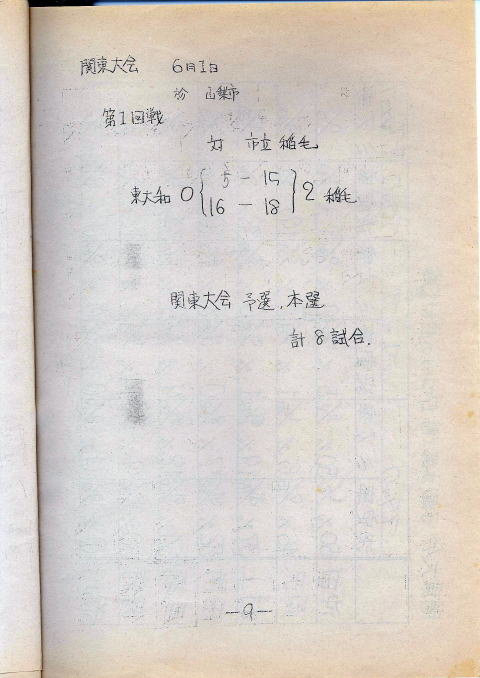 関東大会 6月1日
於
第1回戦
対 市立稲毛
5 - 15
東大和 0 { } 2 稲毛
16 - 18
関東大会 予選、本選
計 8 試合.
-9-